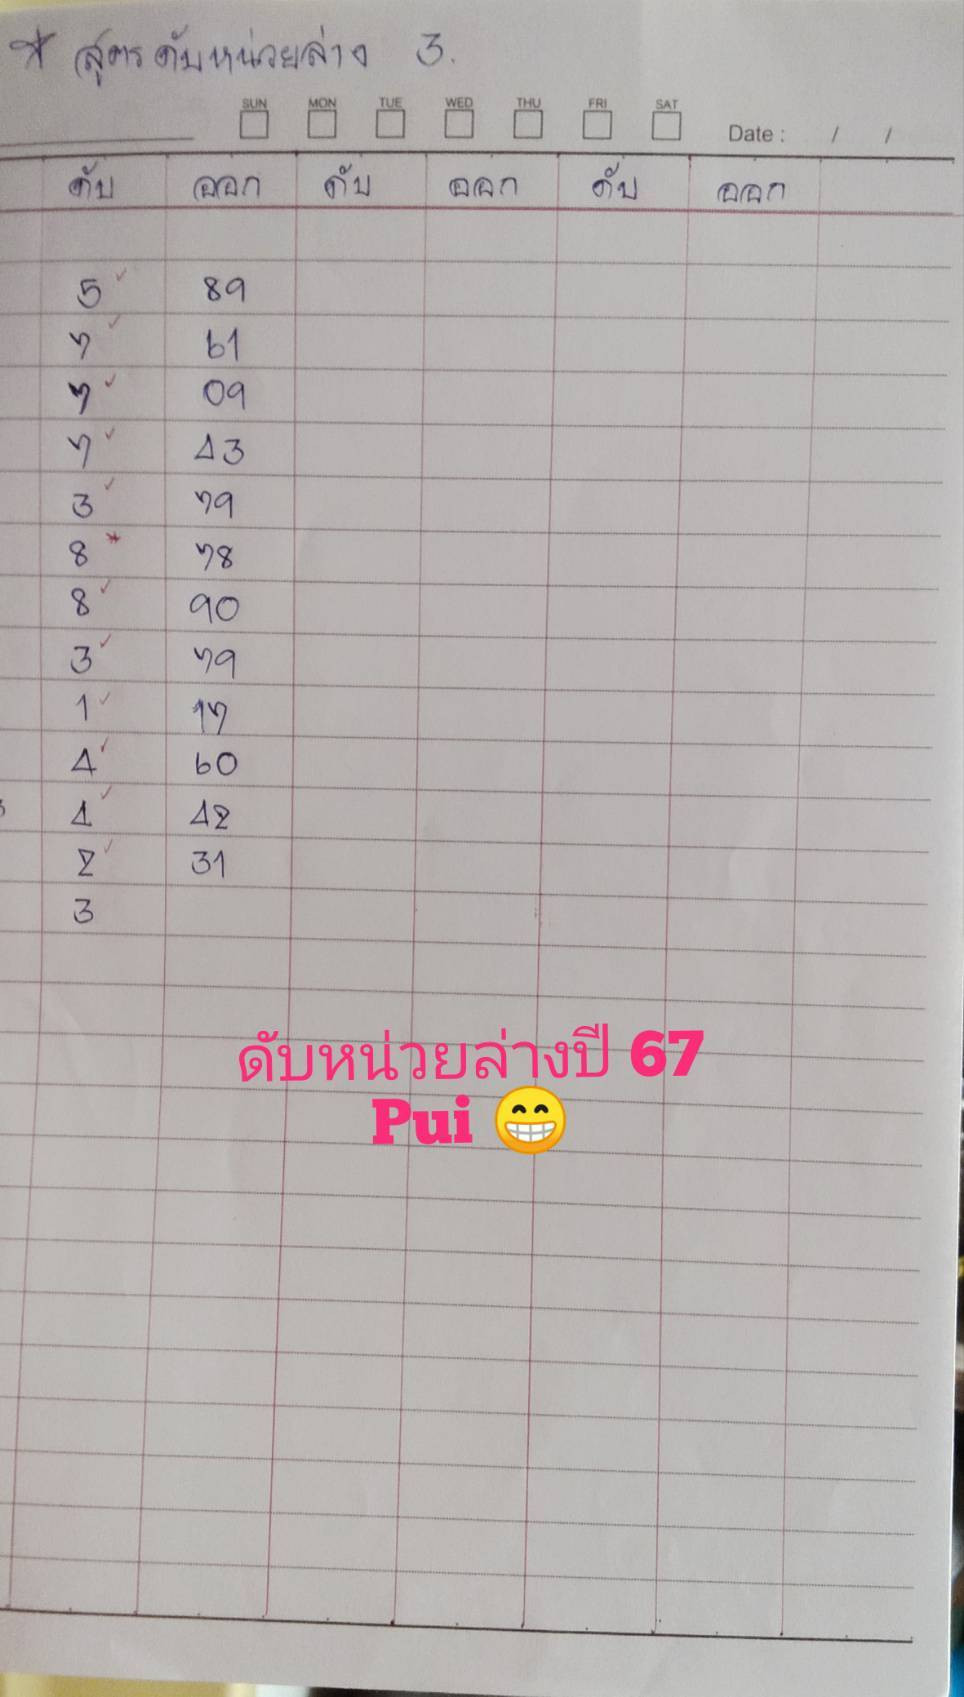 * สูตรดับหน่วยล่าง 3.
SUN MON TUE WED THU FRI SAT
Date : / /
ดับ ออก ดับ ออก ดับ ออก
5 ✓ 89
7 ✓ 61
7 ✓ 09
7 ✓ 43
3 ✓ 79
8 * 78
8 ✓ 90
3 ✓ 79
1 ✓ 17
4 ✓ 60
4 ✓ 42
2 ✓ 31
3
ดับหน่วยล่างปี 67
Pui 😁